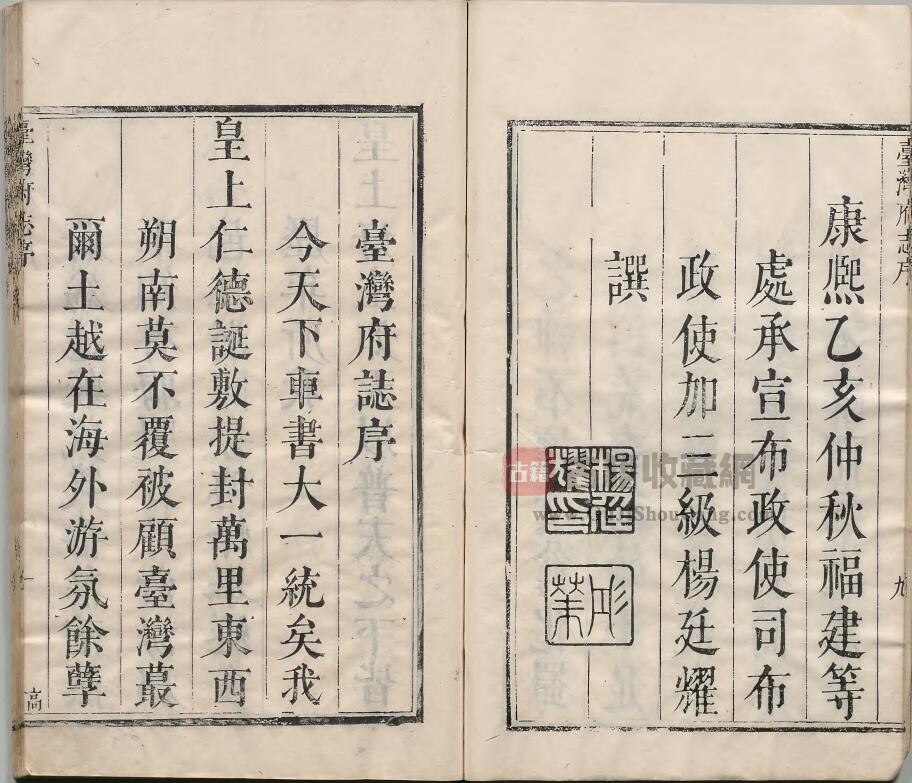 臺灣府志序
康熈乙亥仲秋福建等
處承宣布政使司布
政使加三級楊廷耀
譔
九
臺灣府誌序
今天下車書大一統矣我
皇上仁德誕敷提封萬里東西
朔南莫不覆被顧臺灣蕞
爾土越在海外游氛餘孽
臺灣府志序
一
高
古籍收藏網